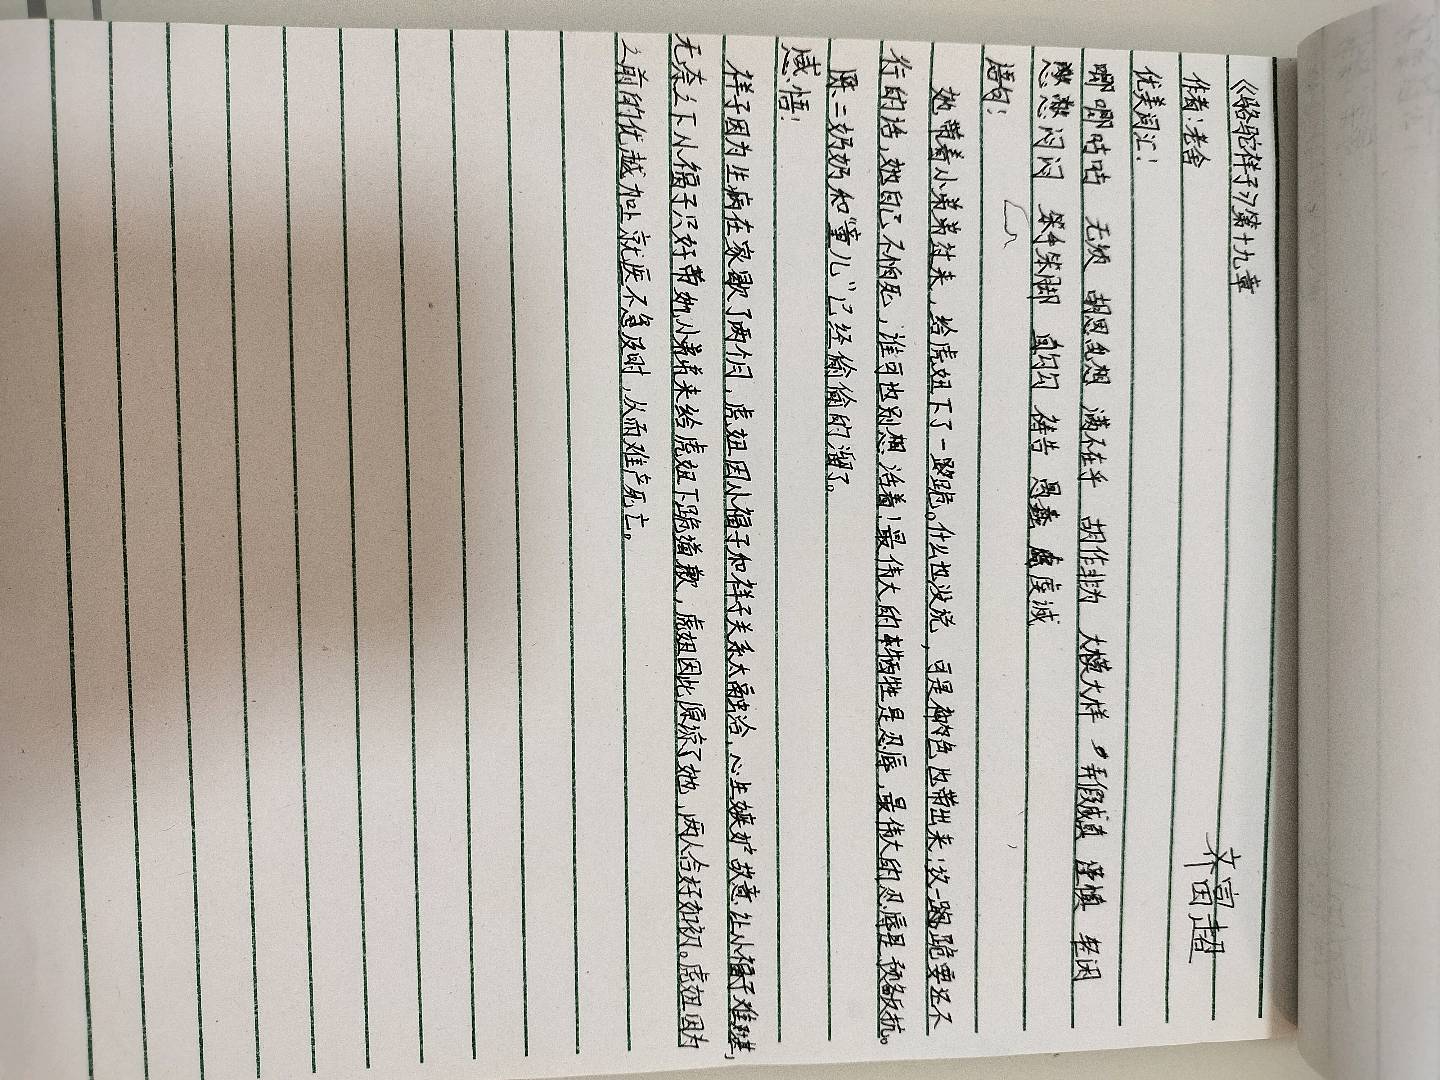 《骆驼祥子》第十九章
齐富超
作者:老舍
优美词汇:
唧唧咕咕 无须 胡思乱想 满不在乎 胡作非为 大模大样 弄假成真 谨慎 轻闲
愁愁闷闷 笨手笨脚 直勾勾 祷告 愚蠢 虔诚
语句:
她带着小弟弟过来,给虎妞下了一跪。什么也没说,可是神色也带出来:这一跪要还不
行的话,她自己不怕死,谁可也别想活着!最伟大的牺牲是忍辱,最伟大的忍辱是预备反抗。
陈二奶奶和“童儿”已经偷偷的溜了。
感悟:
祥子因为生病在家歇了两个月,虎妞因小福子和祥子关系太融洽,心生嫉妒故意让小福子难堪,
无奈之下小福子只好带她小弟弟来给虎妞下跪道歉,虎妞因此原谅了她,两人合好如初。虎妞因为
之前的优越加上就医不及时,从而难产死亡。